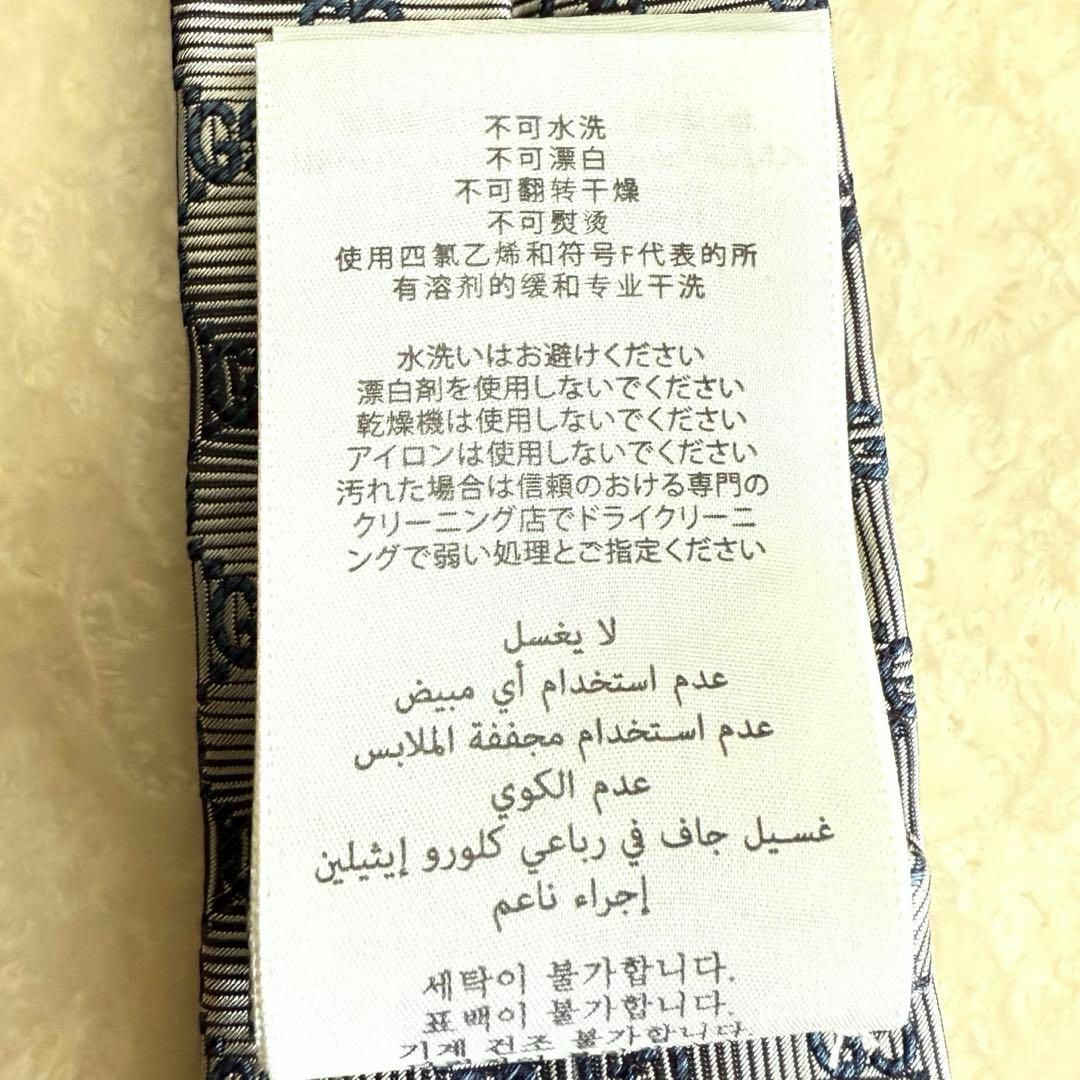 不可水洗
不可漂白
不可翻转干燥
不可熨烫
使用四氯乙烯和符号F代表的所
有溶剂的缓和专业干洗
水洗いはお避けください
漂白剤を使用しないでください
乾燥機は使用しないでください
アイロンは使用しないでください
汚れた場合は信頼のおける専門の
クリーニング店でドライクリーニ
ングで弱い処理とご指定ください
لا يغسل
عدم استخدام أي مبيض
عدم استخدام مجففة الملابس
عدم الكوي
غسيل جاف في رباعي كلورو إيثيلين
إجراء ناعم
세탁이 불가합니다.
표백이 불가합니다.
기계 건조 불가합니다.